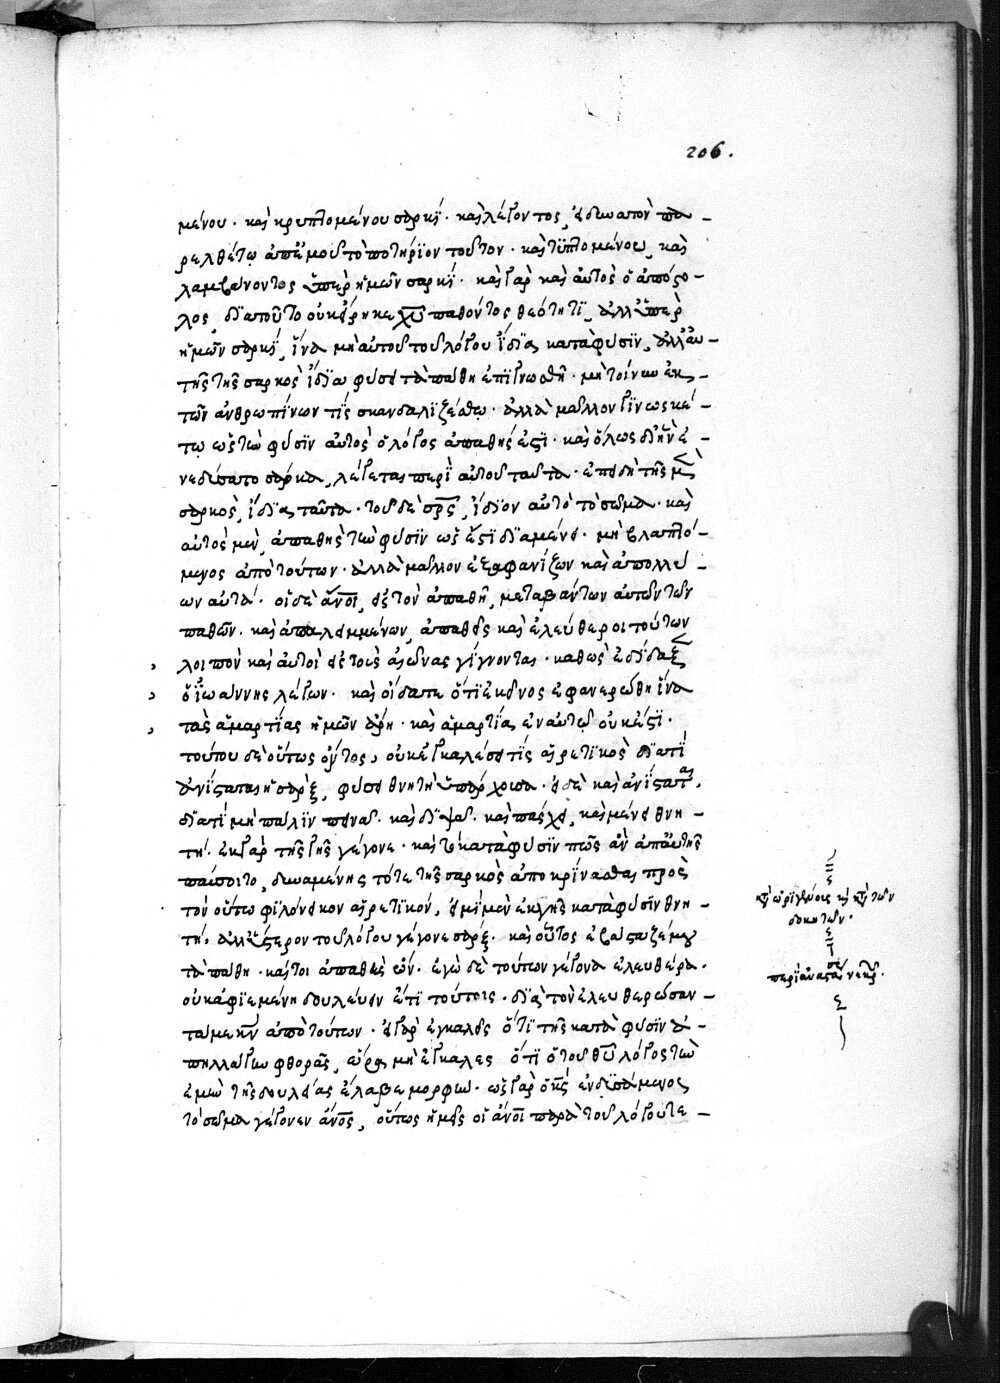 206.
μένου · καὶ κρυπτομένου σαρκί · καὶ λέγοντος, εἰ δυνατὸν πα -
ρελθέτω ἀπ' ἐμοῦ τὸ ποτήριον τοῦτον · καὶ τυπτομένου, καὶ
λαμβάνοντος ὑπὲρ ἡμῶν σαρκί · καὶ γὰρ καὶ αὐτὸς ὁ ἀπόστο -
λος, διὰ τοῦτο οὐκ εἴρηκε χ̅υ̅ παθόντος θεότητι, ἀλλ' ὑπὲρ
ἡμῶν σαρκί, ἵνα μὴ αὐτοῦ τοῦ λόγου ἴδια κατὰ φύσιν, ἀλλ' αὐ -
τῆς τῆς σαρκὸς ἴδια φύσει τὰ πάθη ἐπιγνωσθῆ · μὴ τοίνυν ἐκ -
τῶν ἀνθρωπίνων τίς σκανδαλιζέσθω · ἀλλὰ μᾶλλον γινωσκέ -
τω ὡς τὴν φύσιν αὐτὸς ὁ λόγος ἀπαθής ἐστι · καὶ ὅλως δι' ἣν ἐ -
νεδύσατο σάρκα, λέγεται περὶ αὐτοῦ ταῦτα · ἐπειδὴ τῆς μὲν
σαρκὸς, ἴδια ταῦτα · τοῦ δὲ σ̅ρ̅ς̅, ἴδιον αὐτὸ τὸ σῶμα · καὶ
αὐτὸς μὲν, ἀπαθὴς τὴν φύσιν ὡς ἔστι διαμένει · μὴ βλαπτό -
μενος ἀπὸ τούτων · ἀλλὰ μᾶλλον ἐξαφανίζων καὶ ἀπολλύ -
ων αὐτά · οἱ δὲ ἄ̅ν̅ο̅ι̅, εἰς τὸν ἀπαθῆ, μεταβάντων αὐτῶν τῶν
παθῶν · καὶ ἀπαλειμμένων, ἀπαθεῖς καὶ ἐλεύθεροι τούτων
λοιπὸν καὶ αὐτοὶ εἰς τοὺς αἰῶνας γίγνονται · καθὼς ἐδίδαξεν
ὁ ἰωάννης λέγων · καὶ οἴδατε ὅτι ἐκεῖνος ἐφανερώθη ἵνα
τὰς ἁμαρτίας ἡμῶν ἄρη · καὶ ἁμαρτία ἐν αὐτῷ οὐκ ἔστι ·
τούτου δὲ οὕτως ὄντος, οὐκ ἐγκαλέσει τίς αἱρετικὸς διατί
ἀνίσταται ἡ σὰρξ, φύσει θνητὴ ὑπάρχουσα · εἰ δὲ καὶ ἀνίσταται,
διατί μὴ πάλιν πεινᾶ · καὶ διψᾶ · καὶ πάσχει, καὶ μένει θνη -
τή · ἐκ γὰρ τῆς γῆς γέγονε · καὶ τὸ κατὰ φύσιν πῶς ἂν ἀπ' αὐτῆς
παύσοιτο, δυναμένης τότε τῆς σαρκὸς ἀποκρίνασθαι πρὸς
τὸν οὕτω φιλόνεικον αἱρετικόν, εἰμὶ μὲν ἐκ γῆς κατὰ φύσιν θνη -
τή · ἀλλ' ὕστερον τοῦ λόγου γέγονε σάρξ · καὶ οὗτος ἐβάσταζέ μου
τὰ πάθη · καίτοι ἀπαθὴς ὤν · ἐγὼ δὲ τούτων γέγονα ἐλευθέρα ·
οὐκ ἀφιεμένη δουλεύειν ἔτι τούτοις · διὰ τὸν ἐλευθερώσαν -
τά με κ̅ν̅ ἀπὸ τούτων · εἰ γὰρ ἐγκαλεῖς ὅτι τῆς κατὰ φύσιν ἀ -
πηλλάγην φθορᾶς, ὅρα μὴ ἐγκαλεῖς ὅτι ὁ τοῦ θ̅υ̅ λόγος τὴν
ἐμὴν τῆς δουλείας ἔλαβε μορφήν · ὡς γὰρ ὁ κ̅ς̅ ἐνδυσάμενος
τὸ σῶμα γέγονεν ἄ̅ν̅ο̅ς̅, οὕτως ἡμεῖς οἱ ἄ̅ν̅ο̅ι̅ παρὰ τοῦ λόγου τε -
κατὰ ὠριγένους καὶ κατὰ τῶν
δοκητῶν ·
περὶ ἀναστάσεως νεκρῶν ·